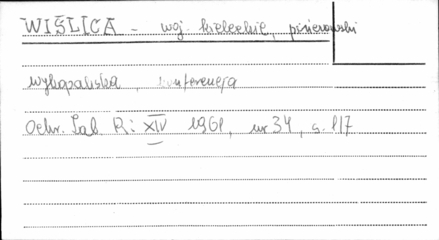 WIŚLICA - woj. kieleckie, pińczowski
wykopaliska, konferencja
Ochr. Zab. R: XIV 1961, nr 34, s. 117